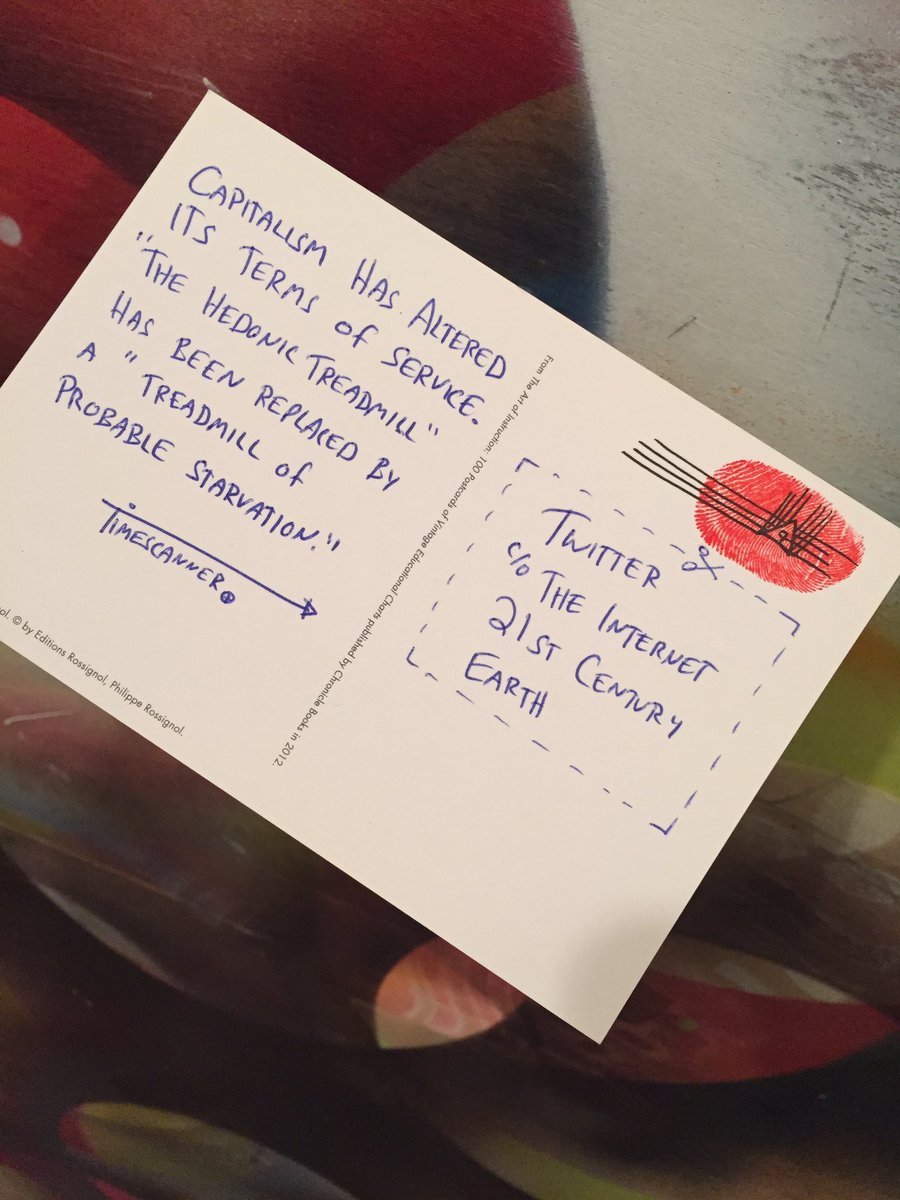 CAPITALISM HAS ALTERED
ITS TERMS OF SERVICE.
"THE HEDONIC TREADMILL"
HAS BEEN REPLACED BY
A "TREADMILL OF
PROBABLE STARVATION."
TIMESCANNER
From The Art of Instruction: 100 Postcards of Vintage Educational Charts published by Chronicle Books in 2012.
© by Editions Rossignol, Philippe Rossignol.
TWITTER
c/o THE INTERNET
21ST CENTURY
EARTH